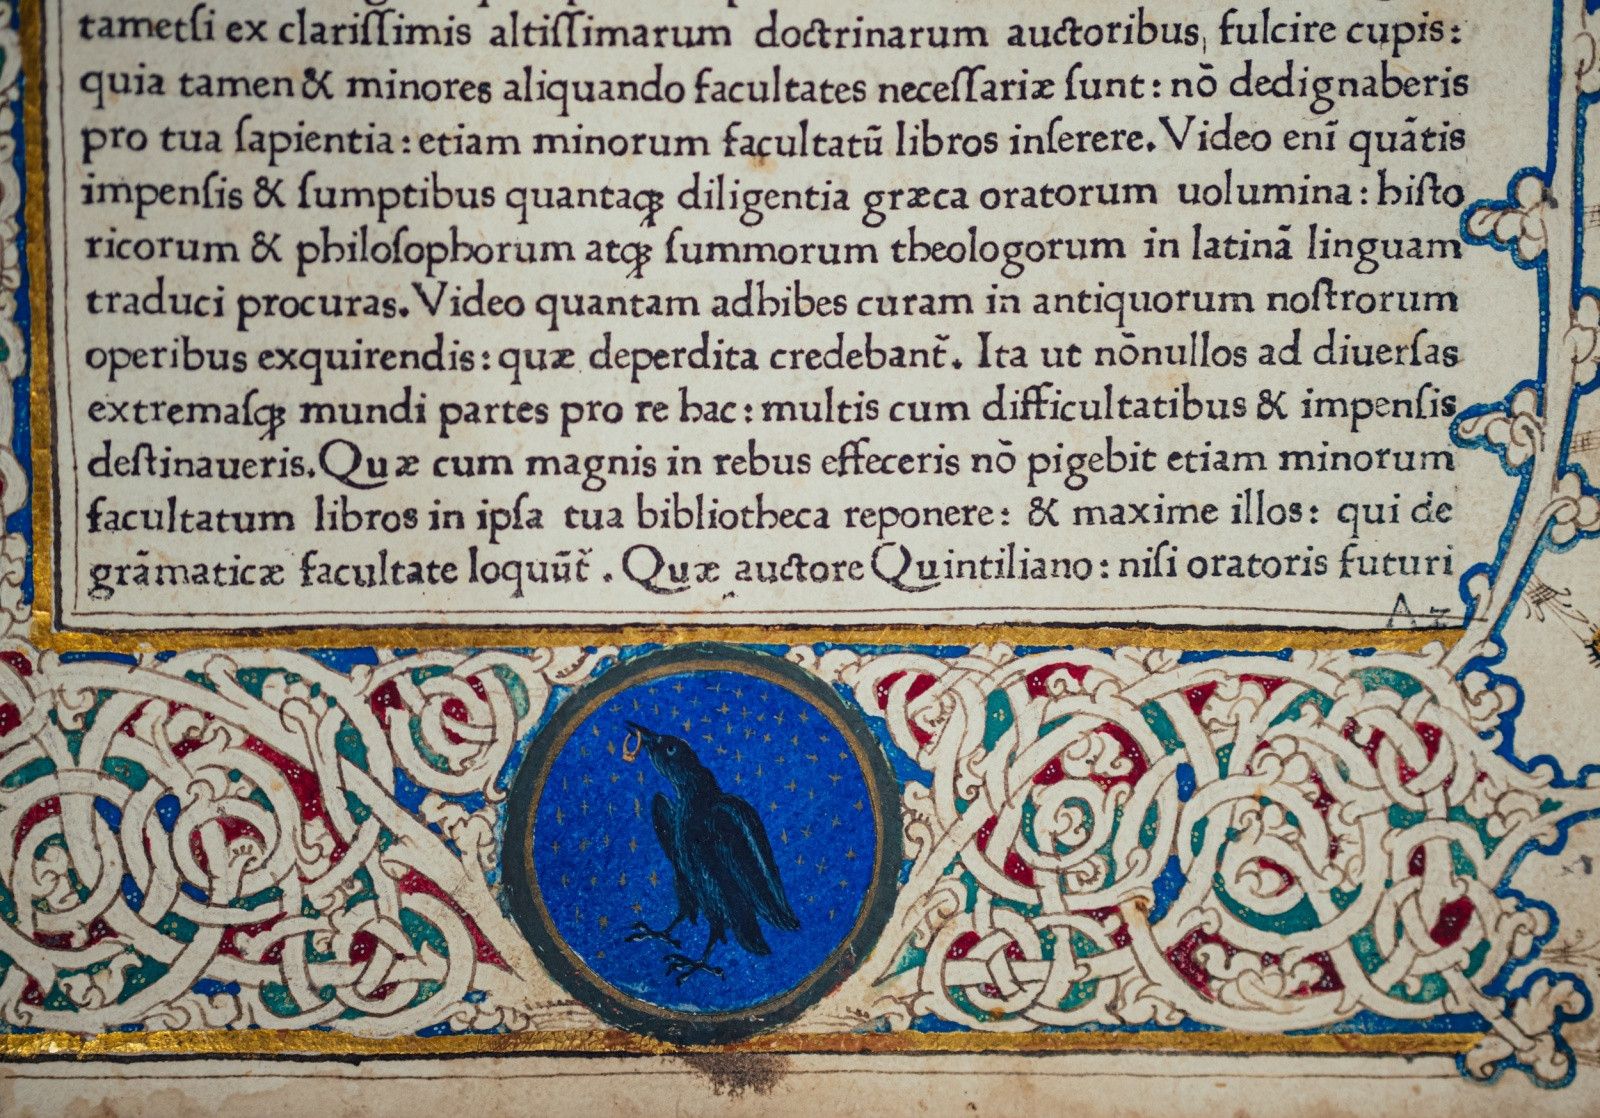 tametſi ex clariſſimis altiſſimarum doctrinarum auctoribus, fulcire cupis:
quia tamen & minores aliquando facultates neceſſariæ ſunt: nō dedignaberis
pro tua ſapientia: etiam minorum facultatū libros inſerere. Video enī quātis
impenſis & ſumptibus quantaqꝫ diligentia græca oratorum uolumina: hiſto
ricorum & philoſophorum atqꝫ ſummorum theologorum in latinā linguam
traduci procuras. Video quantam adhibes curam in antiquorum noſtrorum
operibus exquirendis: quæ deperdita credebant̄. Ita ut nōnullos ad diuerſas
extremaſqꝫ mundi partes pro re hac: multis cum difficultatibus & impenſis
deſtinaueris. Quæ cum magnis in rebus effeceris nō pigebit etiam minorum
facultatum libros in ipſa tua bibliotheca reponere: & maxime illos: qui de
grāmaticæ facultate loquūt̄. Quæ auctore Quintiliano: niſi oratoris futuri